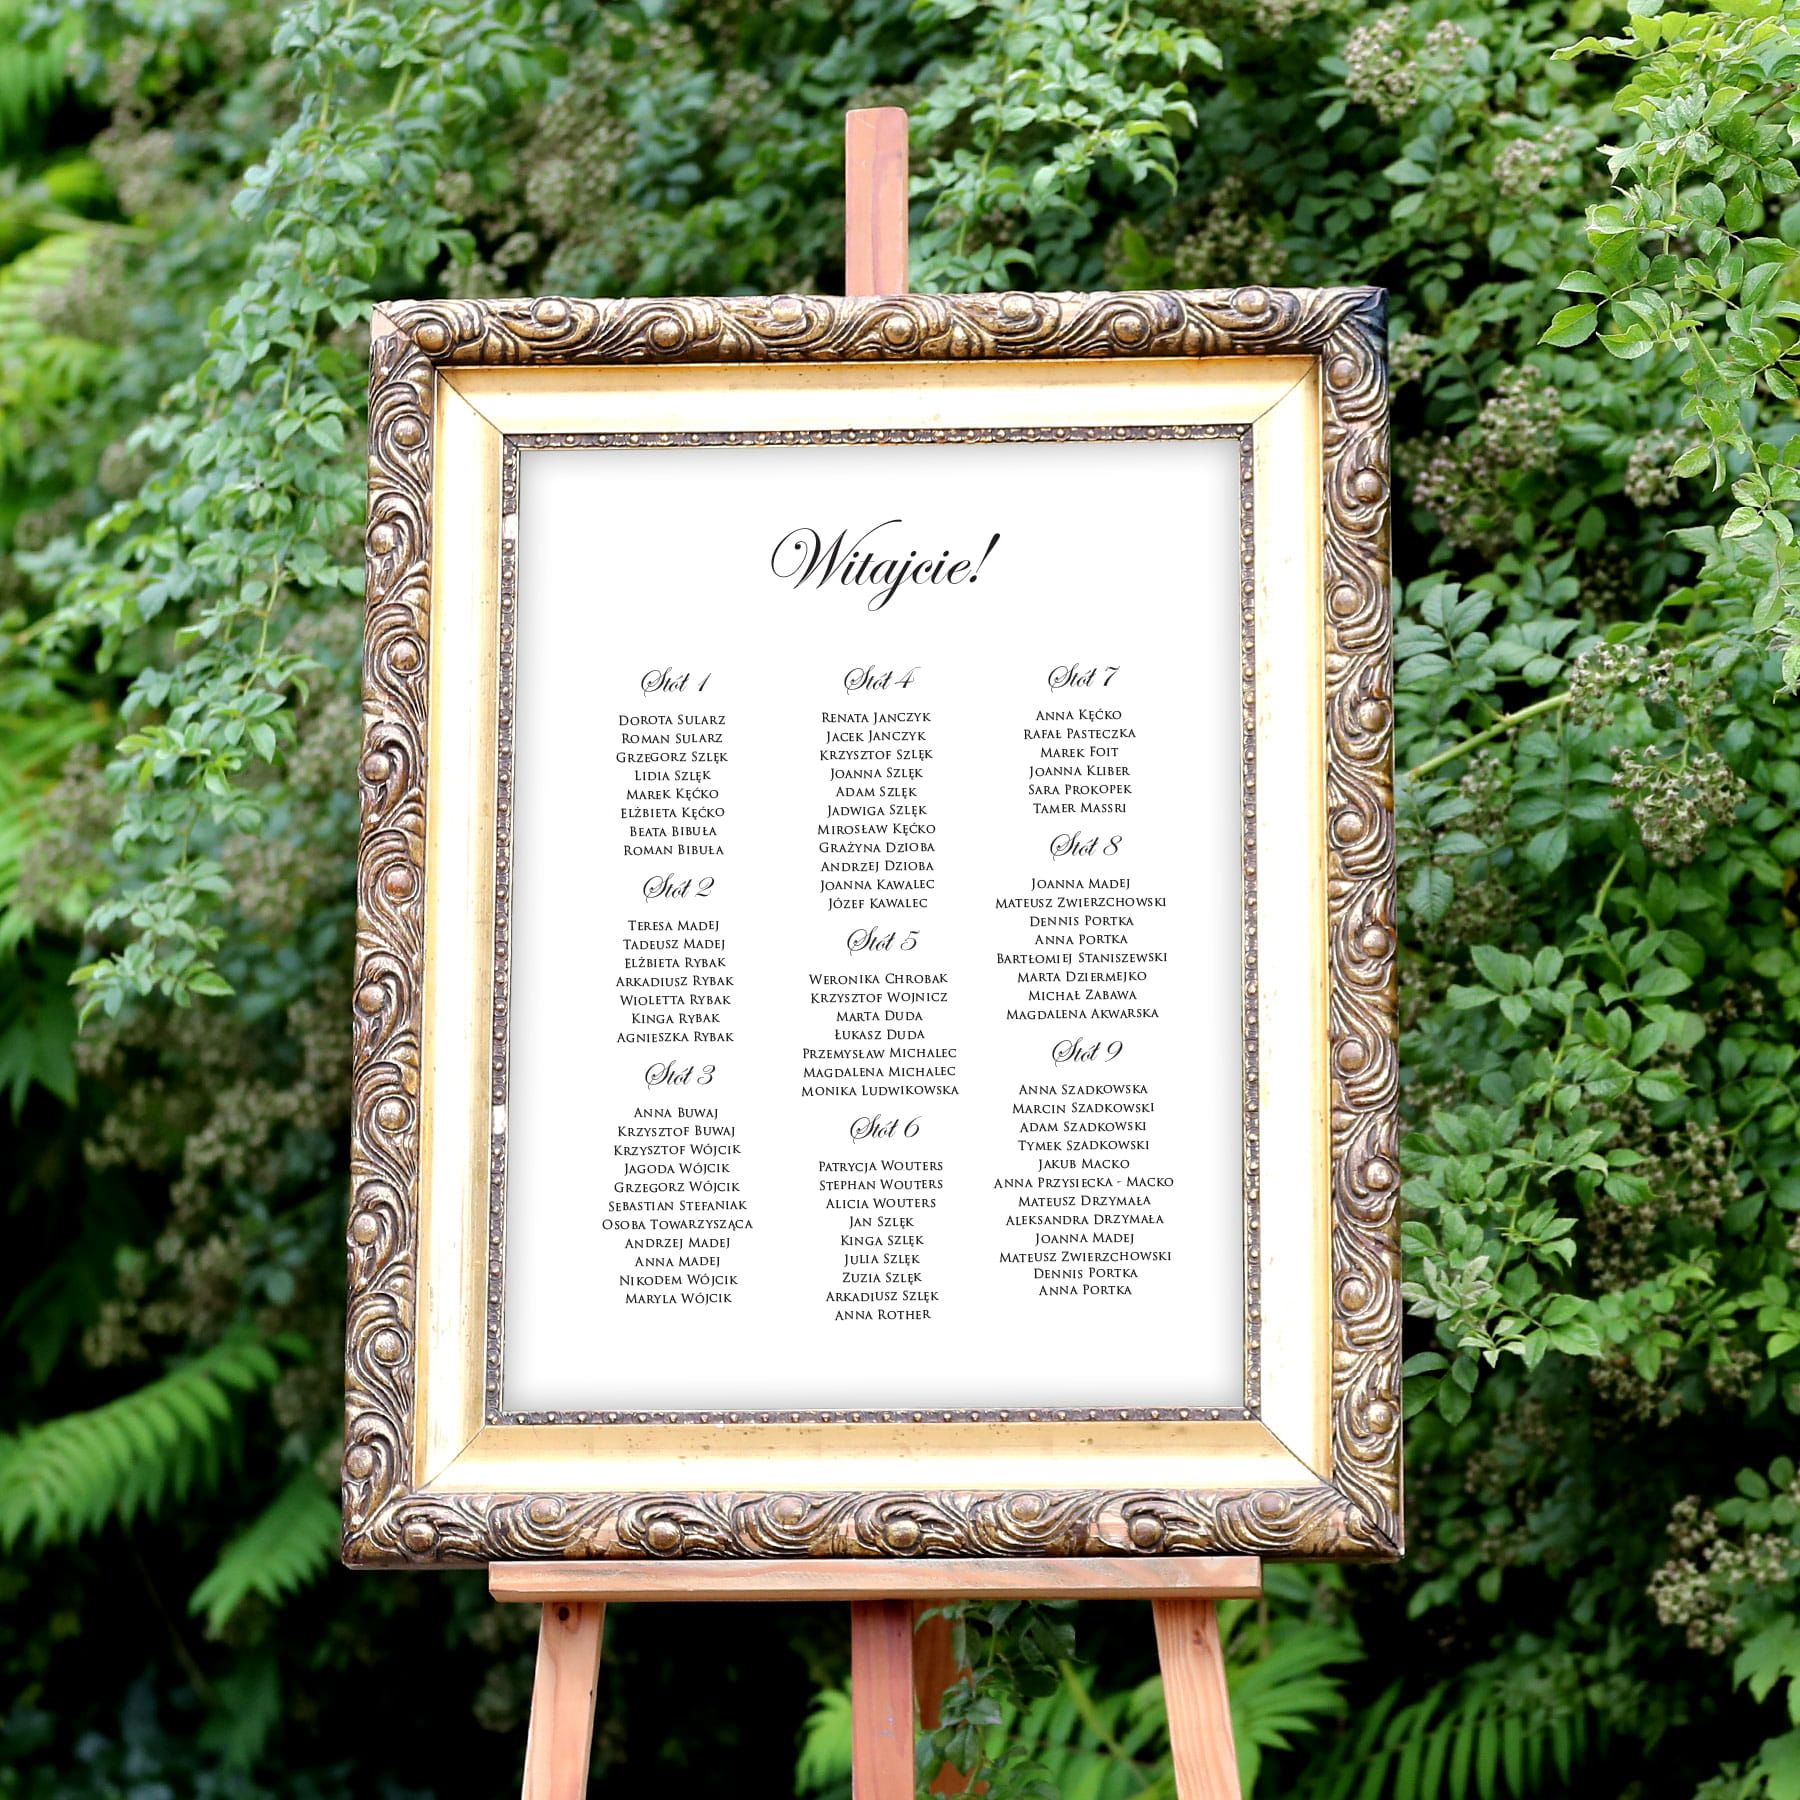 Witajcie!
Stół 1
Dorota Sularz
Roman Sularz
Grzegorz Szlęk
Lidia Szlęk
Marek Kęćko
Elżbieta Kęćko
Beata Bibuła
Roman Bibuła
Stół 2
Teresa Madej
Tadeusz Madej
Elżbieta Rybak
Arkadiusz Rybak
Wioletta Rybak
Kinga Rybak
Agnieszka Rybak
Stół 3
Anna Buwaj
Krzysztof Buwaj
Krzysztof Wójcik
Jagoda Wójcik
Grzegorz Wójcik
Sebastian Stefaniak
Osoba Towarzysząca
Andrzej Madej
Anna Madej
Nikodem Wójcik
Maryla Wójcik
Stół 4
Renata Janczyk
Jacek Janczyk
Krzysztof Szlęk
Joanna Szlęk
Adam Szlęk
Jadwiga Szlęk
Mirosław Kęćko
Grażyna Dzioba
Andrzej Dzioba
Joanna Kawalec
Józef Kawalec
Stół 5
Weronika Chrobak
Krzysztof Wojnicz
Marta Duda
Łukasz Duda
Przemysław Michalec
Magdalena Michalec
Monika Ludwikowska
Stół 6
Patrycja Wouters
Stephan Wouters
Alicia Wouters
Jan Szlęk
Kinga Szlęk
Julia Szlęk
Zuzia Szlęk
Arkadiusz Szlęk
Anna Rother
Stół 7
Anna Kęćko
Rafał Pasteczka
Marek Foit
Joanna Kliber
Sara Prokopek
Tamer Massri
Stół 8
Joanna Madej
Mateusz Zwierzchowski
Dennis Portka
Anna Portka
Bartłomiej Staniszewski
Marta Dziermejko
Michał Zabawa
Magdalena Akwarska
Stół 9
Anna Szadkowska
Marcin Szadkowski
Adam Szadkowski
Tymek Szadkowski
Jakub Macko
Anna Przysiecka - Macko
Mateusz Drzymała
Aleksandra Drzymała
Joanna Madej
Mateusz Zwierzchowski
Dennis Portka
Anna Portka